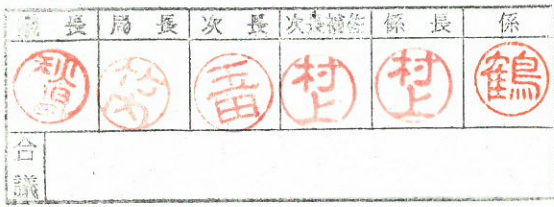 長 局長 次長 次長補佐 係長 係
竹内 村上 村上 鶴
合議